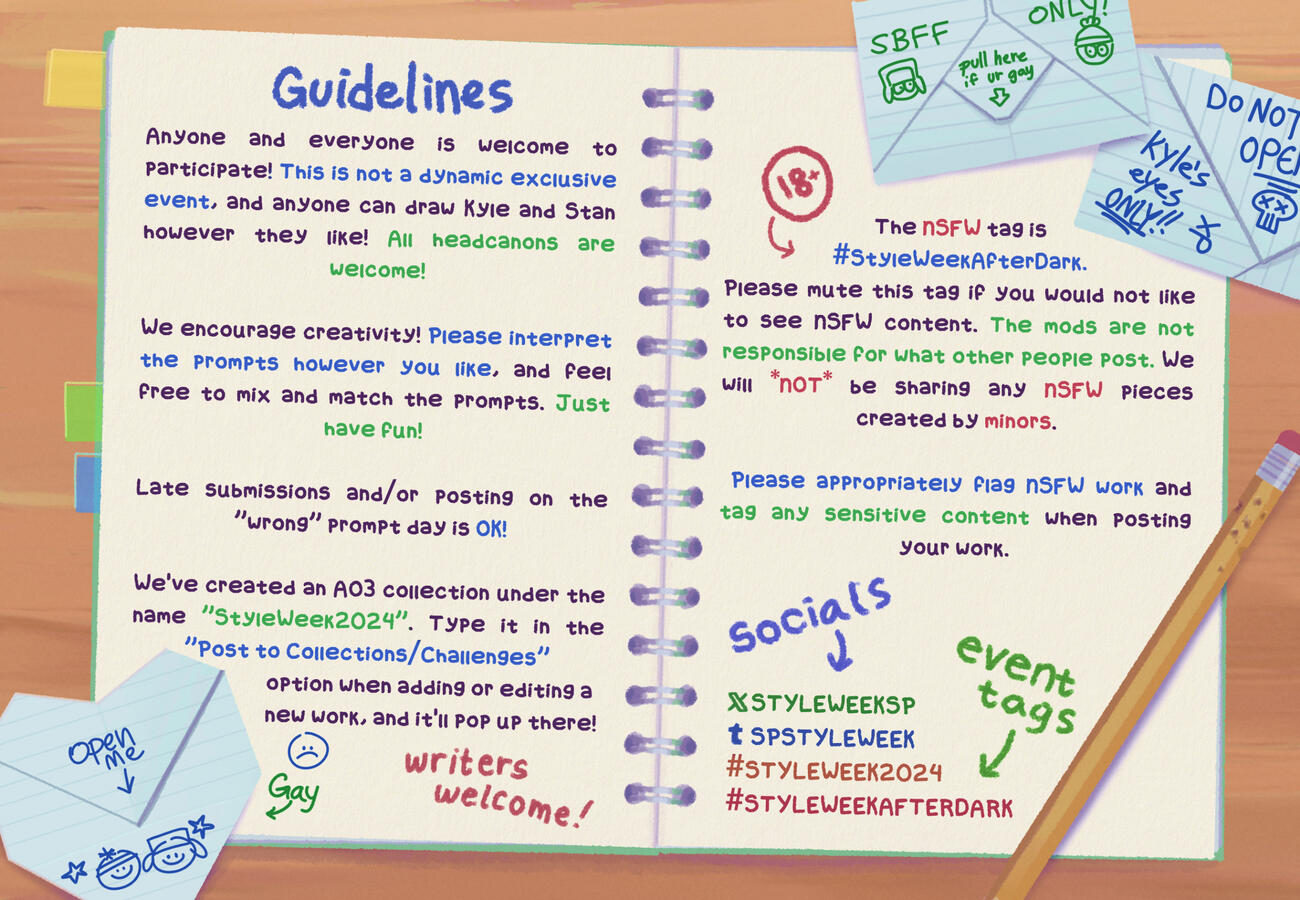 Guidelines
Anyone and everyone is welcome to
participate! This is not a dynamic exclusive
event, and anyone can draw Kyle and Stan
however they like! All headcanons are
welcome!
We encourage creativity! Please interpret
the prompts however you like, and feel
free to mix and match the prompts. Just
have fun!
Late submissions and/or posting on the
"wrong" prompt day is OK!
We've created an AO3 collection under the
name "StyleWeek2024". Type it in the
"Post to Collections/Challenges"
option when adding or editing a
new work, and it'll pop up there!
Gay
writers
welcome!
open
me
SBFF
ONLY!
pull here
if ur gay
DO NOT
OPEN
Kyle's
eyes
ONLY!!
18+
The NSFW tag is
#StyleWeekAfterDark.
Please mute this tag if you would not like
to see NSFW content. The mods are not
responsible for what other people post. We
will *NOT* be sharing any NSFW pieces
created by minors.
Please appropriately flag NSFW work and
tag any sensitive content when posting
your work.
socials
event
tags
X STYLEWEEKSP
t SPSTYLEWEEK
#STYLEWEEK2024
#STYLEWEEKAFTERDARK